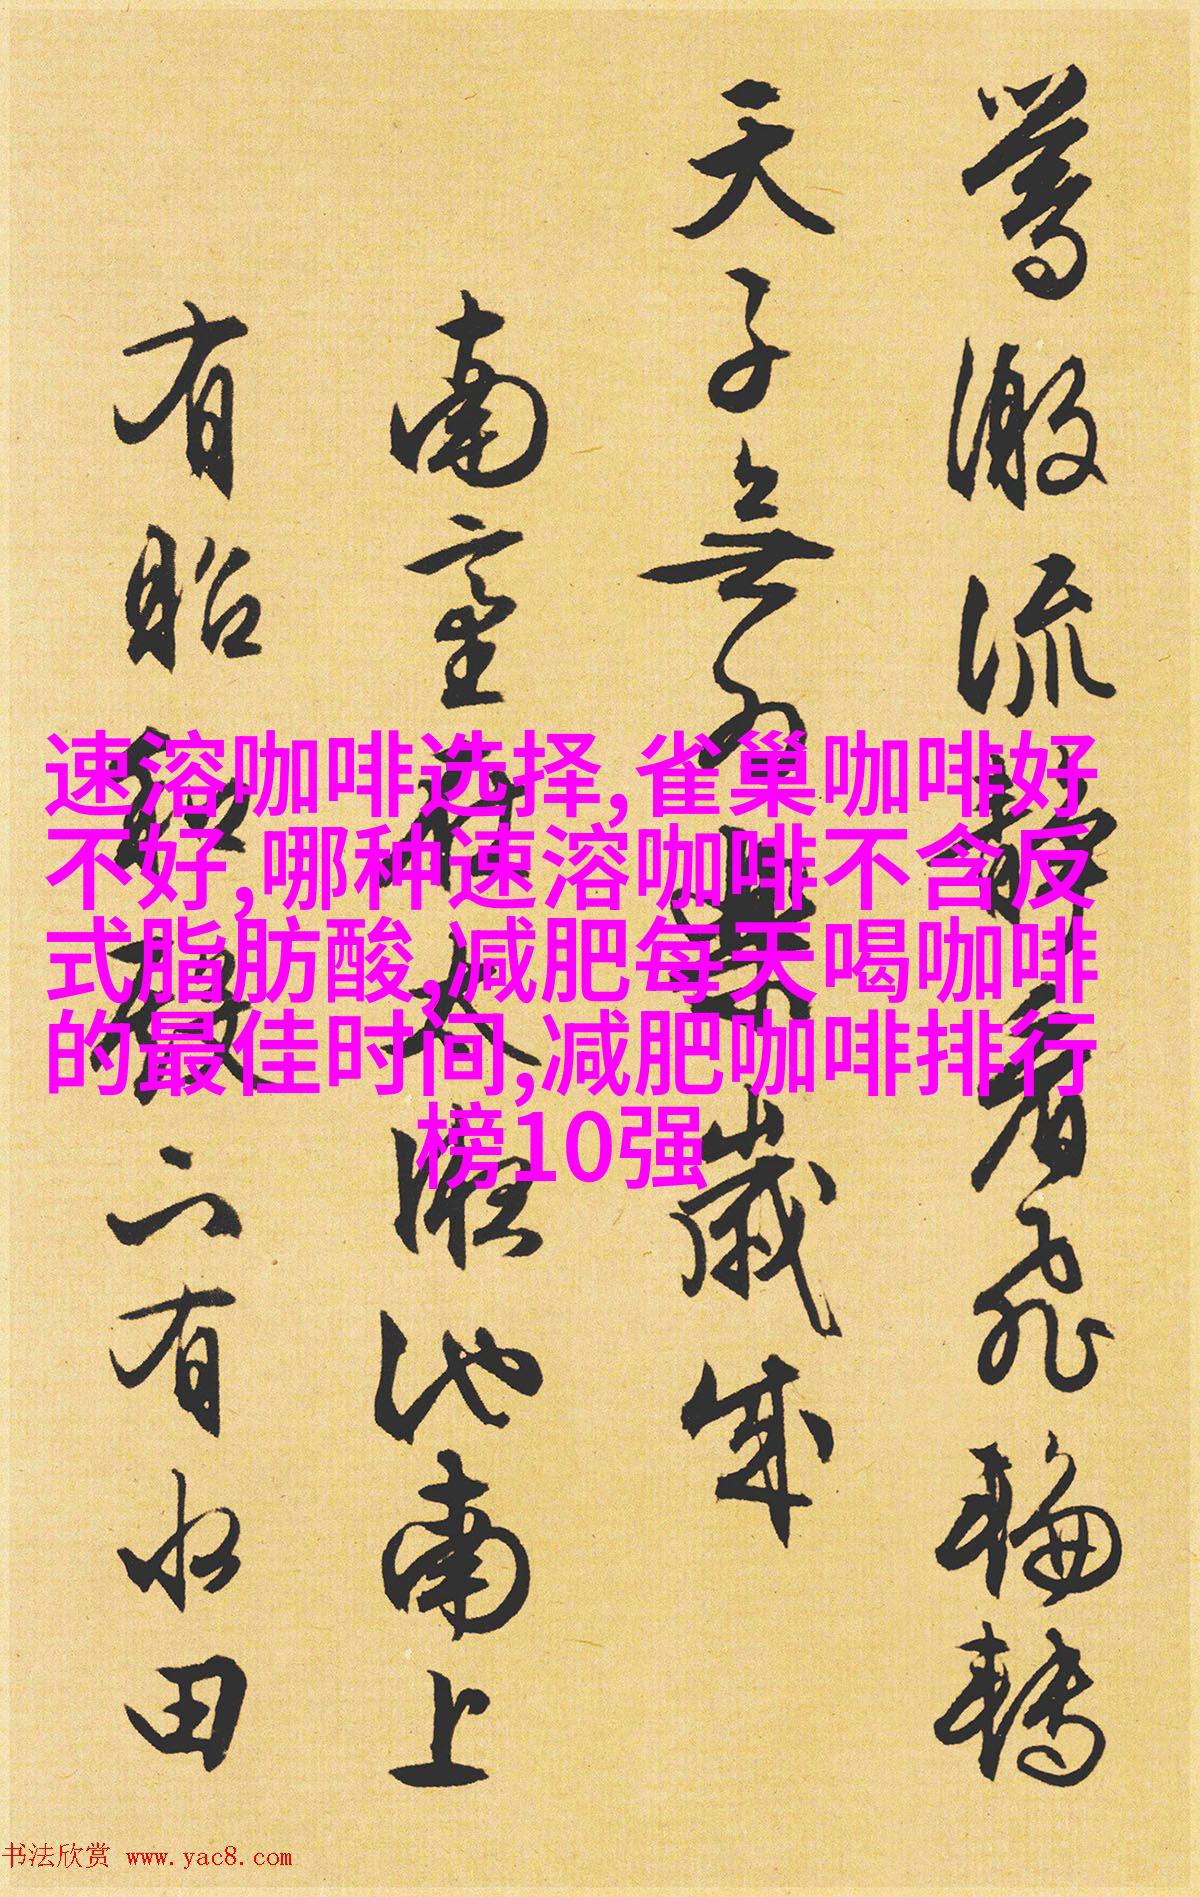 激流静看飛輪轉
天子無 歲成
南臺 太液池南上
有昭和殿下有水田
速溶咖啡选择,雀巢咖啡好
不好,哪种速溶咖啡不含反
式脂肪酸,减肥每天喝咖啡
的最佳时间,减肥咖啡排行
榜10强
书法欣赏 www.yac8.com